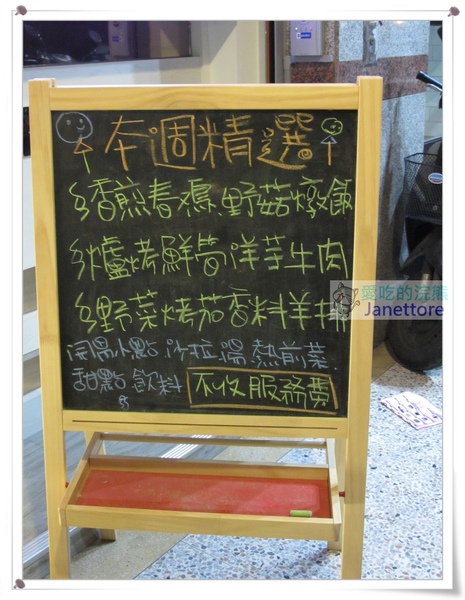 本週精選
香煎春鳮野菇燉飯
爐烤鮮筍洋芋牛肉
野菜烤茄香料羊排
開胃小點 沙拉 湯 熱前菜.
甜點 飲料 不收服務費
愛吃的浣熊
Janettore